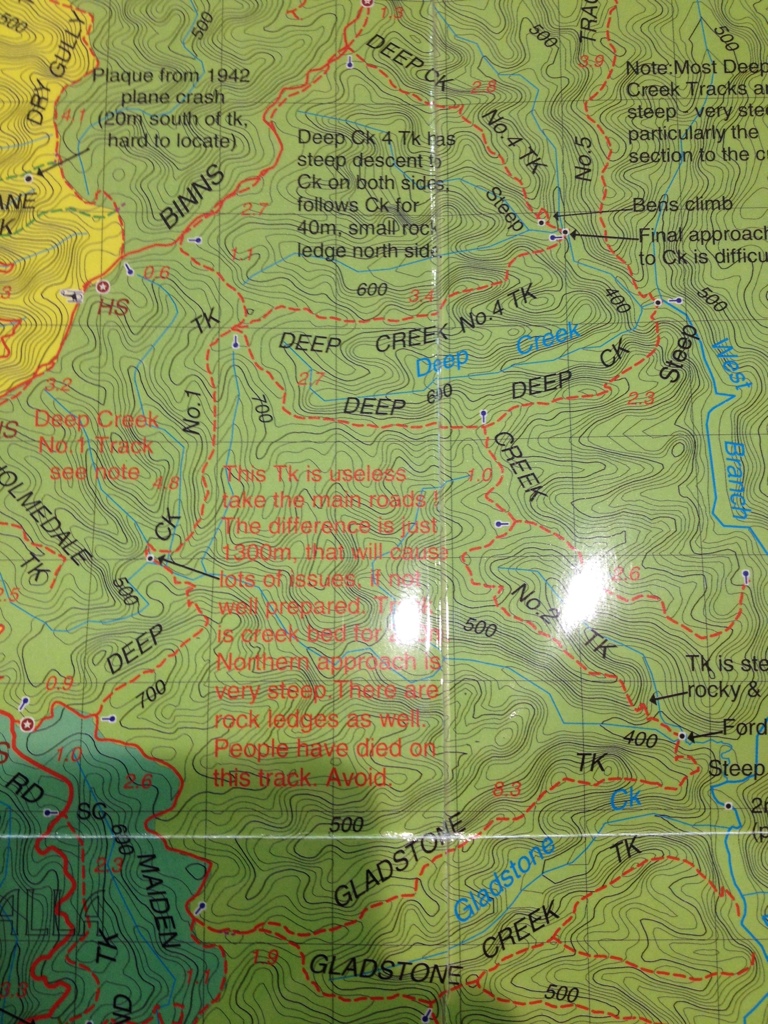 500
500
1.3
TRAC
500
500
DRY GULLY
DEEP CK
3.9
Plaque from 1942
plane crash
(20m south of tk,
hard to locate)
Note:Most Deep
Creek Tracks a
steep - very stee
particularly the
section to the c
2.8
4.1
No.4 TK
No.5
Deep Ck 4 Tk has
steep descent to
Ck on both sides,
follows Ck for
40m, small rock
ledge north side.
BINNS
Steep
Bens climb
Final approach
to Ck is difficu
ANE
K
2.7
1.1
0.6
600
3.4
400
500
HS
TK
DEEP CREEK No.4 TK
Deep Creek
Steep
West
Branch
2.7
600
DEEP CK
DEEP
2.3
3.2
700
No.1
Deep Creek
No.1 Track
see note
HS
CREEK
1.0
4.8
HOLMEDALE
TK
CK
This Tk is useless
take the main roads !
The difference is just
1300m, that will cause
lots of issues, if not
well prepared.
is creek bed for
Northern approach is
very steep.There are
rock ledges as well.
People have died on
this track. Avoid.
500
2.6
2.6
No.2 TK
500
DEEP
700
0.9
Tk is ste
rocky &
Ford
400
Steep
1.0
2.6
TK
8.3
RD
SG
600
500
Ck
GLADSTONE
Gladstone
TK
2.3
MAIDEN
ALLA
TK
CREEK
1.9
1.1
GLADSTONE
3.3
500
ND